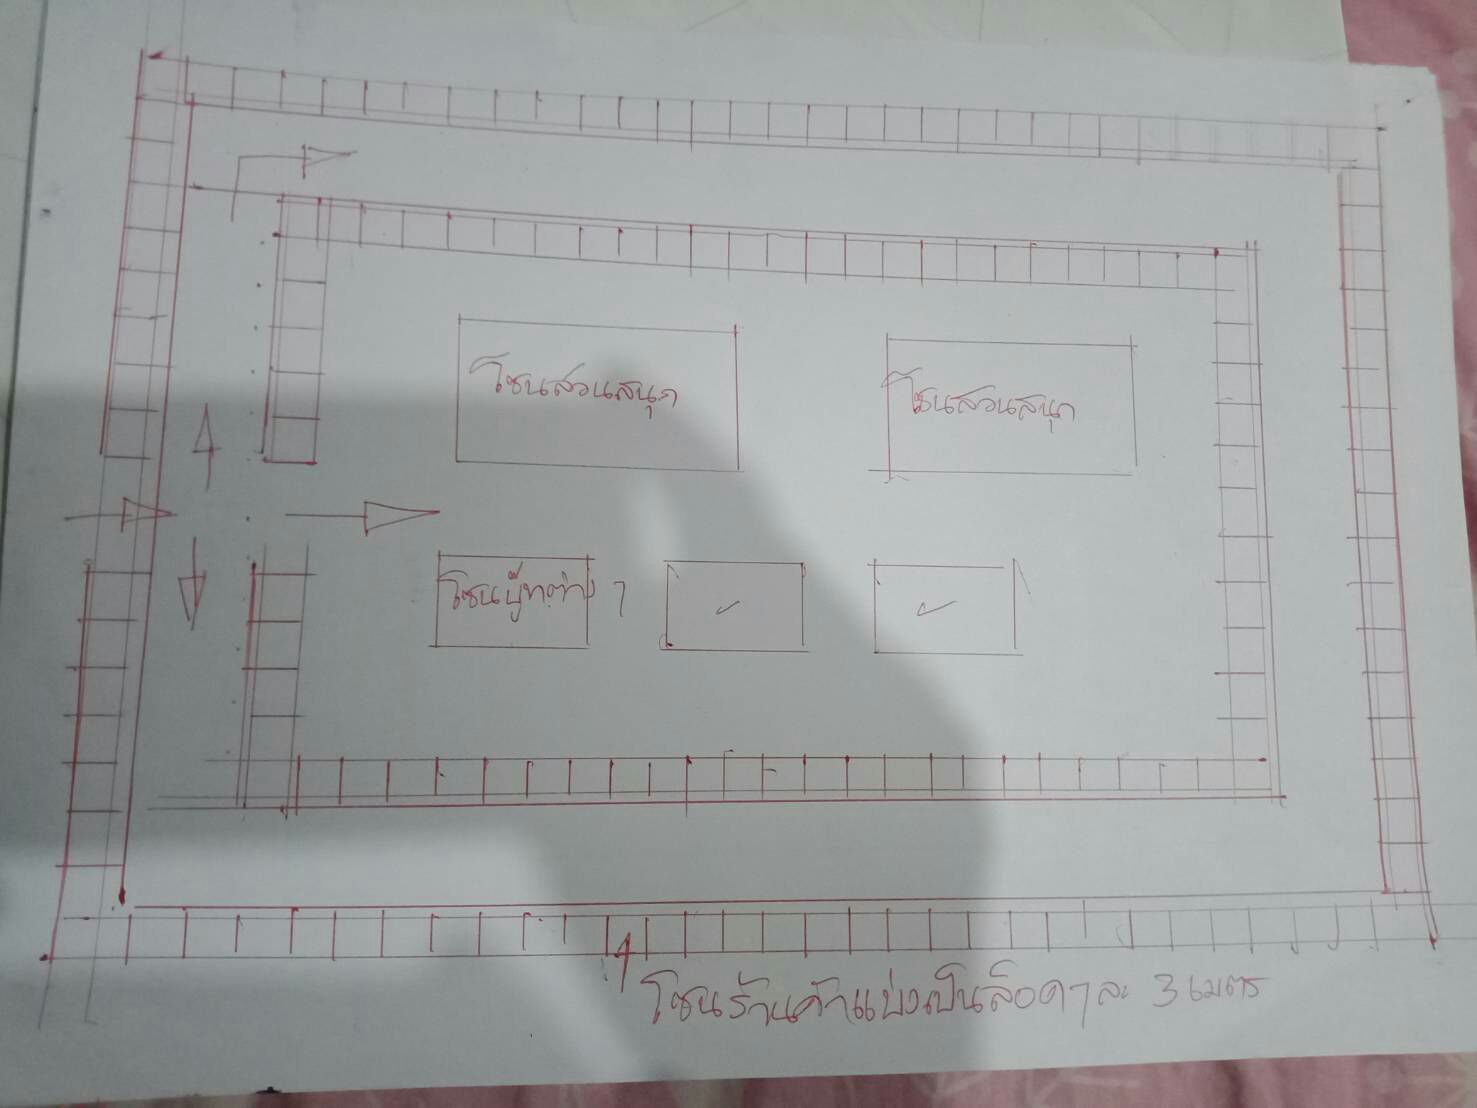 โซนสวนสนุก
โซนสวนสนุก
โซนบู๊ทต่าง ๆ
โซนร้านค้าแบ่งเป็นล็อคๆละ 3 เมตร